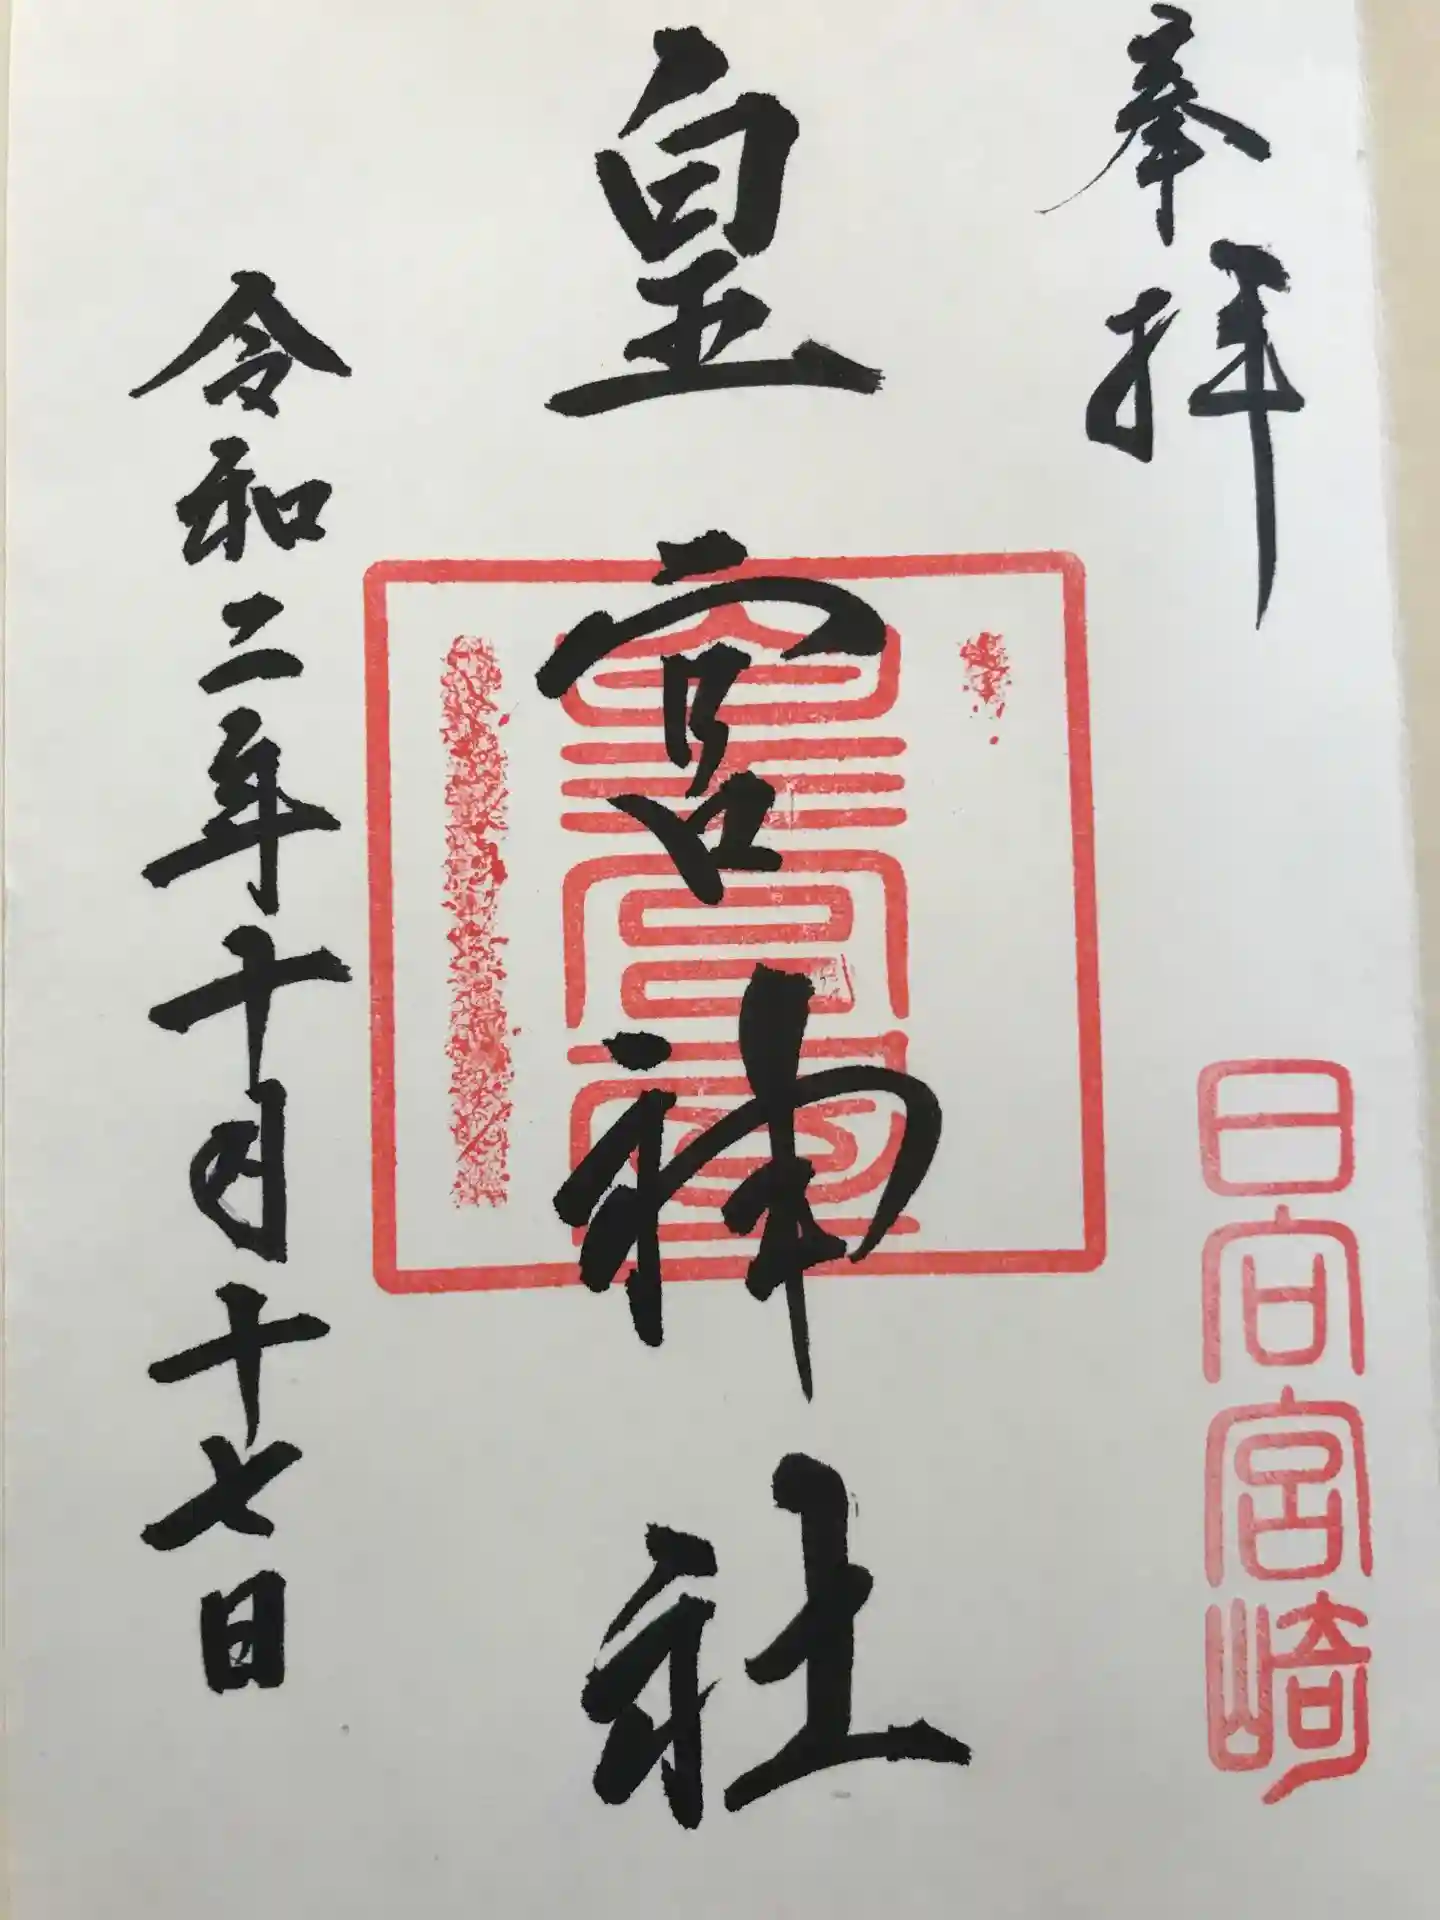 奉拝
日向宮崎
皇宮神社
皇宮屋
令和二年十月十七日